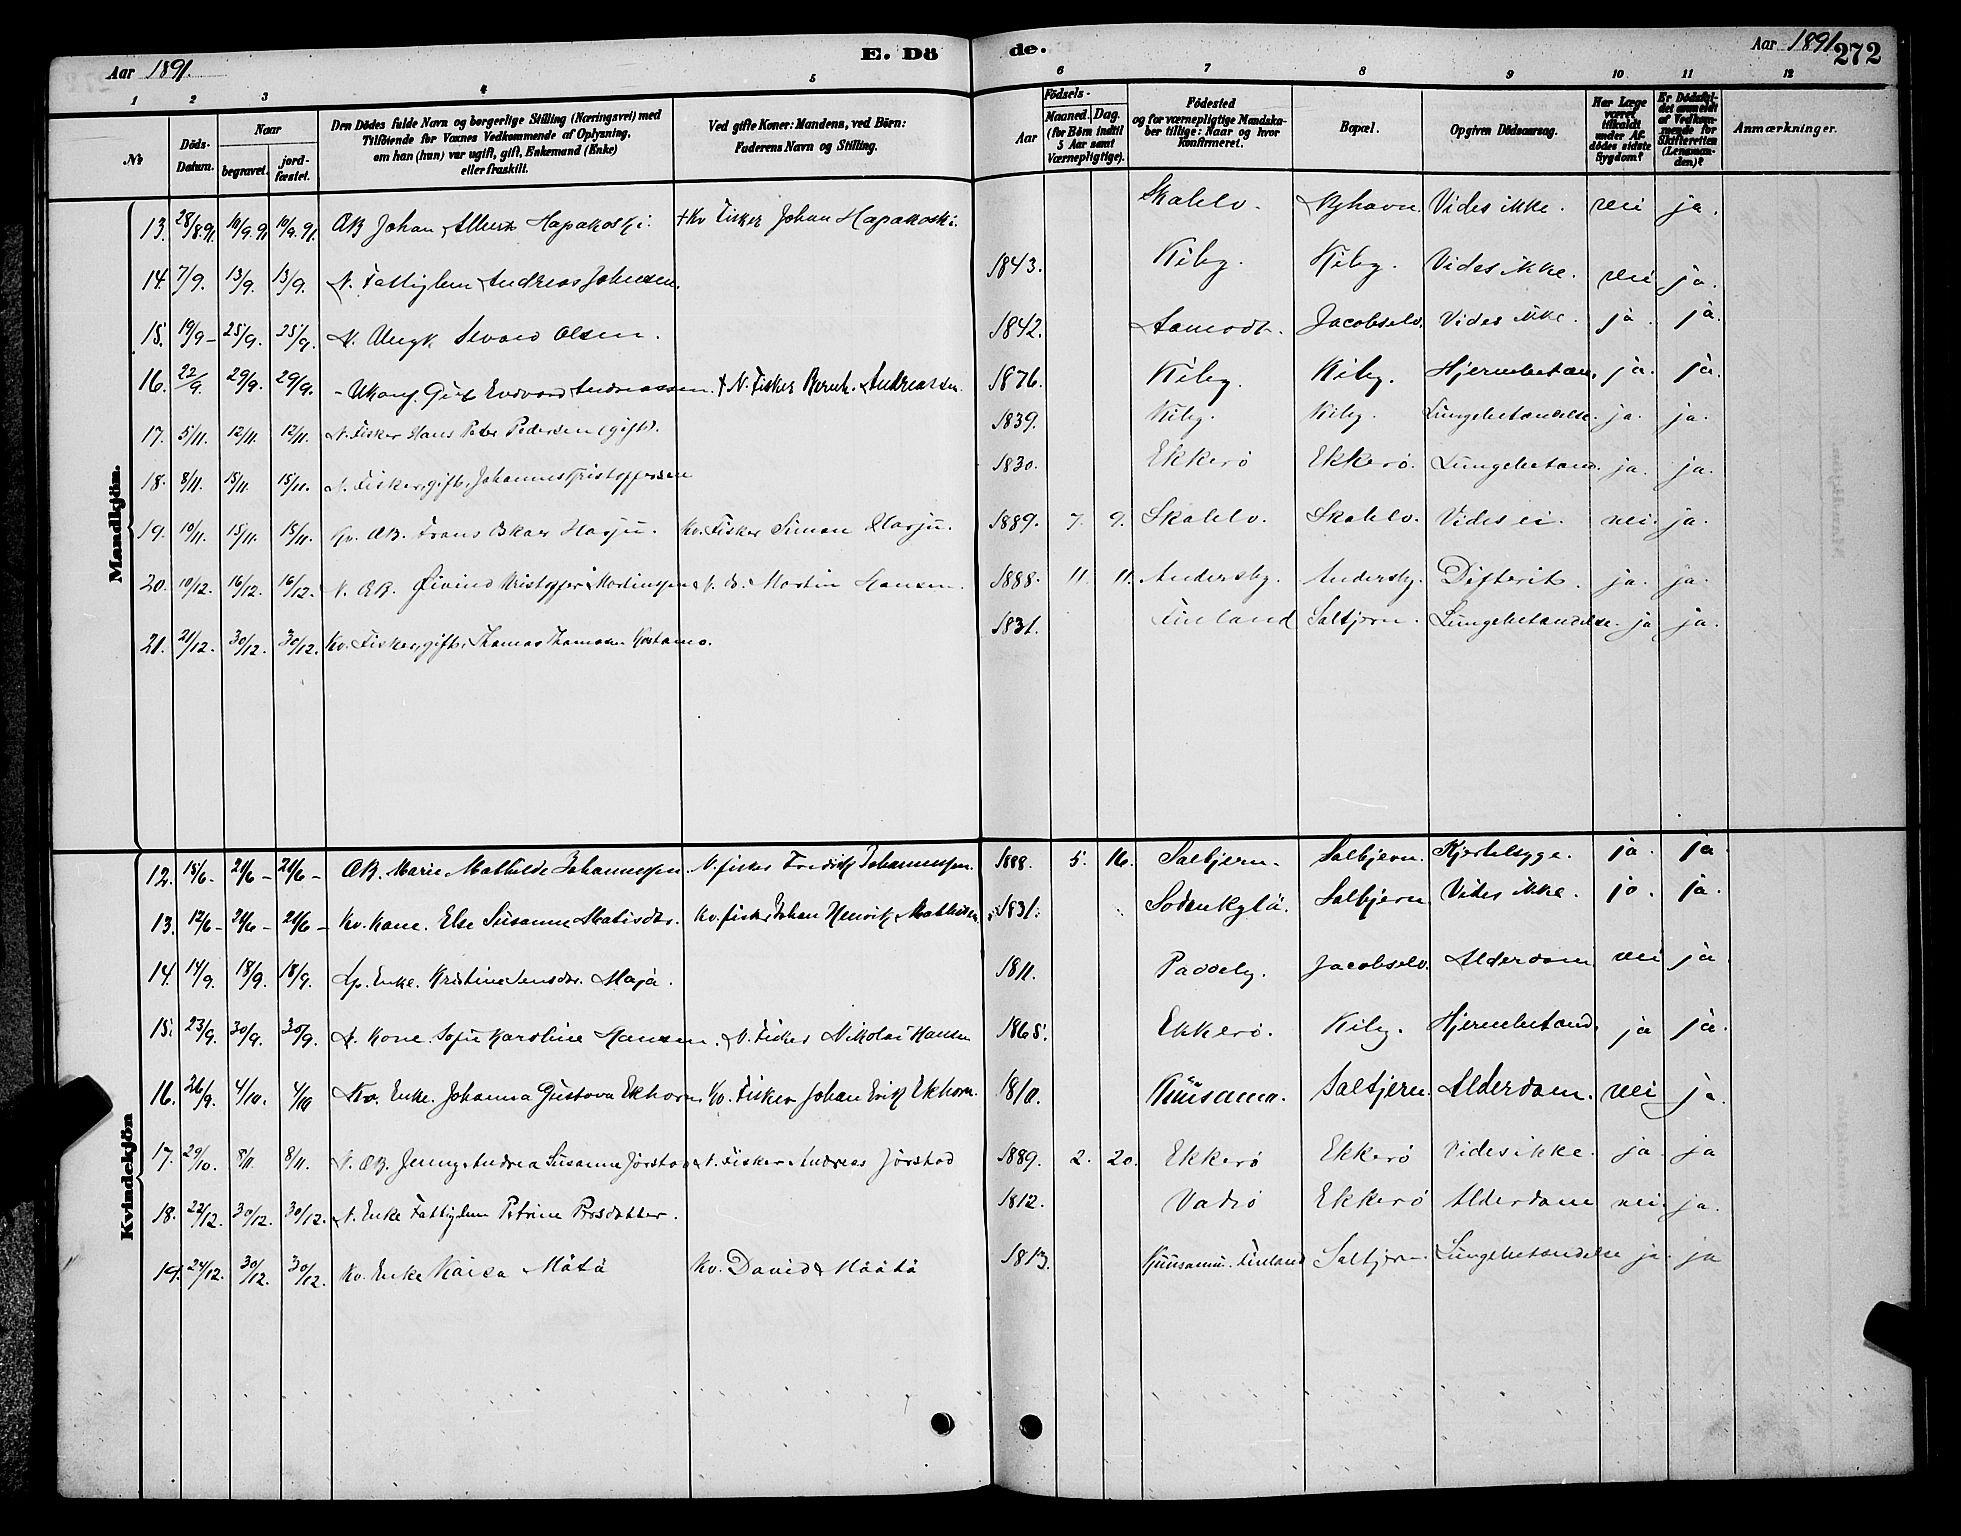 Aar 1891. E. Dö
de. Aar 1891 272
1 2 3 4 5 6 7 8 9 10 11 12
№ Döds-Datum. Naar begravet. jordfæstet. Den Dödes fulde Navn og borgerlige Stilling (Næringsvei) med Tilföiende for Voxnes Vedkommende af Oplysning, om han (hun) var ugift, gift, Enkemand (Enke) eller fraskilt. Ved gifte Koner: Mandens, ved Börn: Faderens Navn og Stilling. Aar Födsels- Maaned. Dag. (for Börn indtil 5 Aar samt Værnepligtige). Födested og for værnepligtige Mandskaber tillige: Naar og hvor konfirmeret. Bopæl. Opgiven Dödsaarsag. Har Læge været tilkaldt under Afdödes sidste Sygdom? Er Dödsfaldet anmeldt af Vedkommende for Skifteretten (Lensmanden)? Anmærkninger.
Mandkjön.
13. 28/8 91. 19/9. 91 19/9. 91. ÆB Johan Albert Hapakoski. + Kv Fisker Johan Hapakoski. Skablv. Nyhavn. Vides ikke. nei ja.
14. 7/9. 13/9. 13/9. N. Fattiglem Andreas Johnsen. 1843. Kiby. Kiby. Vides ikke. nei ja.
15. 19/9 - 25/9. 25/9. N. Ungk Sivard Olsen. 1842. Aamodt. Jacobselv. Vides ikke. ja. ja.
16. 22/9. 29/9. 29/9. - Ukonf. Edvard Andreassen. + N. Fisker Bernh. Andreassen. 1876. Kiby. Kiby. Hjernebetæn. ja. ja.
17. 5/11. 12/11. 12/11. N. Fisker Hans Peter Pedersen (gift). 1839. Kiby. Kiby. Lungebetændelse. ja. ja.
18. 8/11. 15/11. 15/11. N. Fisker, gift, Johannes Kristoffersen 1830. Ekkerö Ekkerö. Lungebetænd. ja. ja.
19. 10/11. 15/11. 15/11. Kv. ÆB. Frans Oskar Harju. Kv. Fisker Simon Harju. 1889. 7. 9. Skablv. Skablv. Vides ei. nei. ja.
20. 10/12. 16/12. 16/12. N. ÆB. Öivind Kristoffer Martinssen N. Martin Hansen. 1888. 11. 11. Andersby. Andersby. Difterit. ja. ja.
21. 21/12. 30/12. 30/12. Kv. Fisker, gift, Thomas Thomasen Kostamo. 1831. Finland Saltjern. Lungebetændelse. ja ja.
Kvindekjön
12. 15/6 - 21/6 - 21/6 - ÆB. Marie Mathilde Johannessen. N. fisker Fredrik Johannessen. 1888. 5. 16. Saltjern. Saltjern. Kjertelsyge. ja. ja.
13. 12/6 - 21/6 - 21/6 - Kv. Kone. Else Susanna Matisdtr. Kv. fisker Johan Henrik Mathisen 1831. Sodenkylä. Saltjern. Vides ikke. ja. ja.
14. 14/9. 18/9. 18/9. Lp. Enke. Kristine Jensdtr. Maja. 1811. Paddeby. Jacobselv. Alderdom. nei ja.
15. 23/9. 30/9. 30/9. N. Kone. Sofie Karoline Hansen. N. Fisker Nikolai Hansen 1865. Ekkerö. Kiby. Hjernebetænd. ja ja.
16. 26/9. 4/10. 4/10 Kv. Enke. Johanna Gustova Ekhorn Kv. Fisker Johan Erik Ekhorn. 1810. Kuusamo. Saltjern. Alderdom. nei ja.
17. 29/10. 8/11. 8/11. N. ÆB. Jenny Andrea Susanna Jörstad N. Fisker Andreas Jörstad 1889. 2. 20. Ekkerö Ekkerö Vides ikke. ja. ja
18. 22/12. 30/12. 30/12. N. Enke Fattiglem Petrine Persdatter. 1812. Vadsö Ekkerö Alderdom nei. ja.
19. 24/12. 30/12. 30/12. Kv. Enke Kaisa Mätä Kv. David Määtä 1813. Kuusamo. Finland Saltjern Lungebetændelse ja. ja